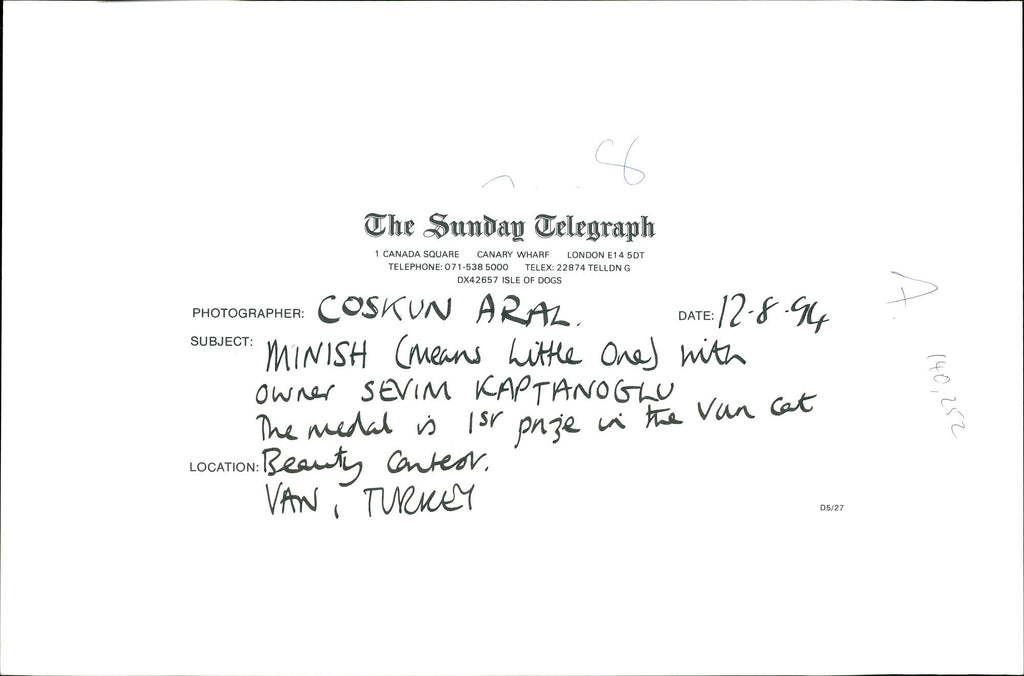 8
The Sunday Telegraph
1 CANADA SQUARE CANARY WHARF LONDON E14 5DT
TELEPHONE: 071-538 5000 TELEX: 22874 TELLDN G
DX42657 ISLE OF DOGS
PHOTOGRAPHER: COSKUN ARAL. DATE: 12-8-94
SUBJECT: MINISH (Means Little One) with
owner SEVIM KAPTANOGLU
The medal is 1st prize in the Van Cat
LOCATION: Beauty Contest.
VAN, TURKEY
D5/27
A
140,252